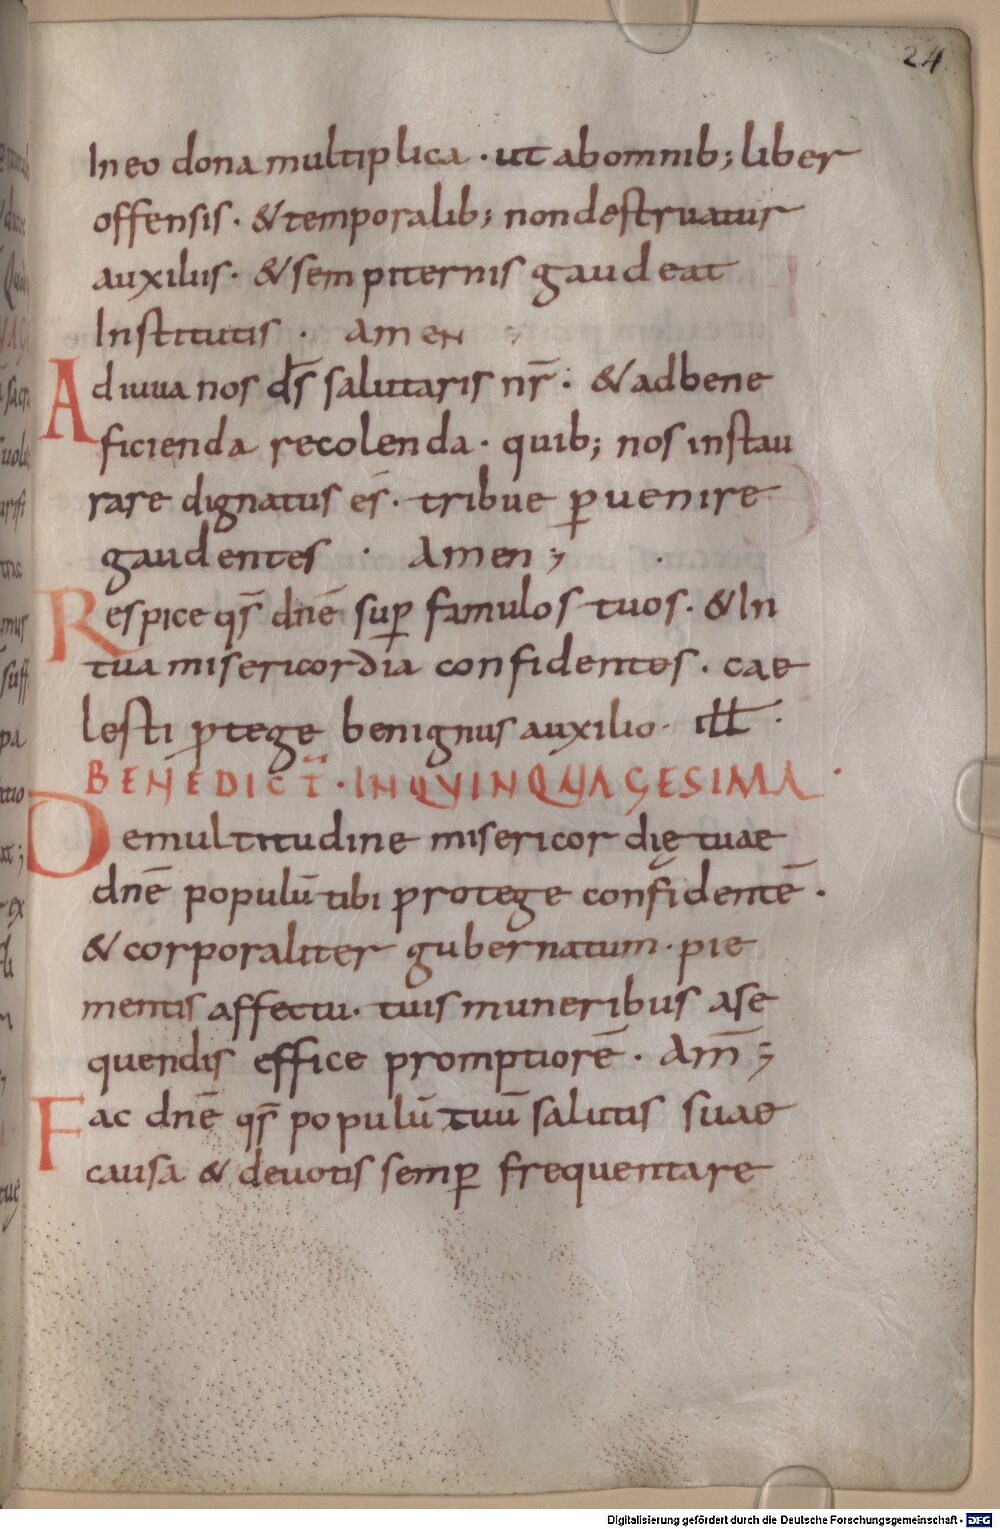 24
In eo dona multiplica · ut ab omnib; liber
offensis · & temporalib; non destruatur
auxiliis · & sempiternis gaudeat
Institutis · amen
Adiuua nos d̄s salutaris nr̄ · & ad bene
ficienda recolenda · quib; nos instau
rare dignatus es · tribue ꝑuenire
gaudentes · Amen ;
Respice qs̄ dnē suꝑ famulos tuos · & In
tua misericordia confidentes · cae
lesti ꝓtege benignus auxilio · ill ·
BENEDICT̄ · IN QUINQUAGESIMA
De multitudine misericordię tuae
dnē populū tibi protege confidentē ·
& corporaliter gubernatum · pie
mentis affectu · tuis muneribus ase
quendis effice promptiorē · Am̄ ;
Fac dnē qs̄ populū tuū salutis suae
causa & deuotis semꝑ frequentare
Digitalisierung gefördert durch die Deutsche Forschungsgemeinschaft - DFG